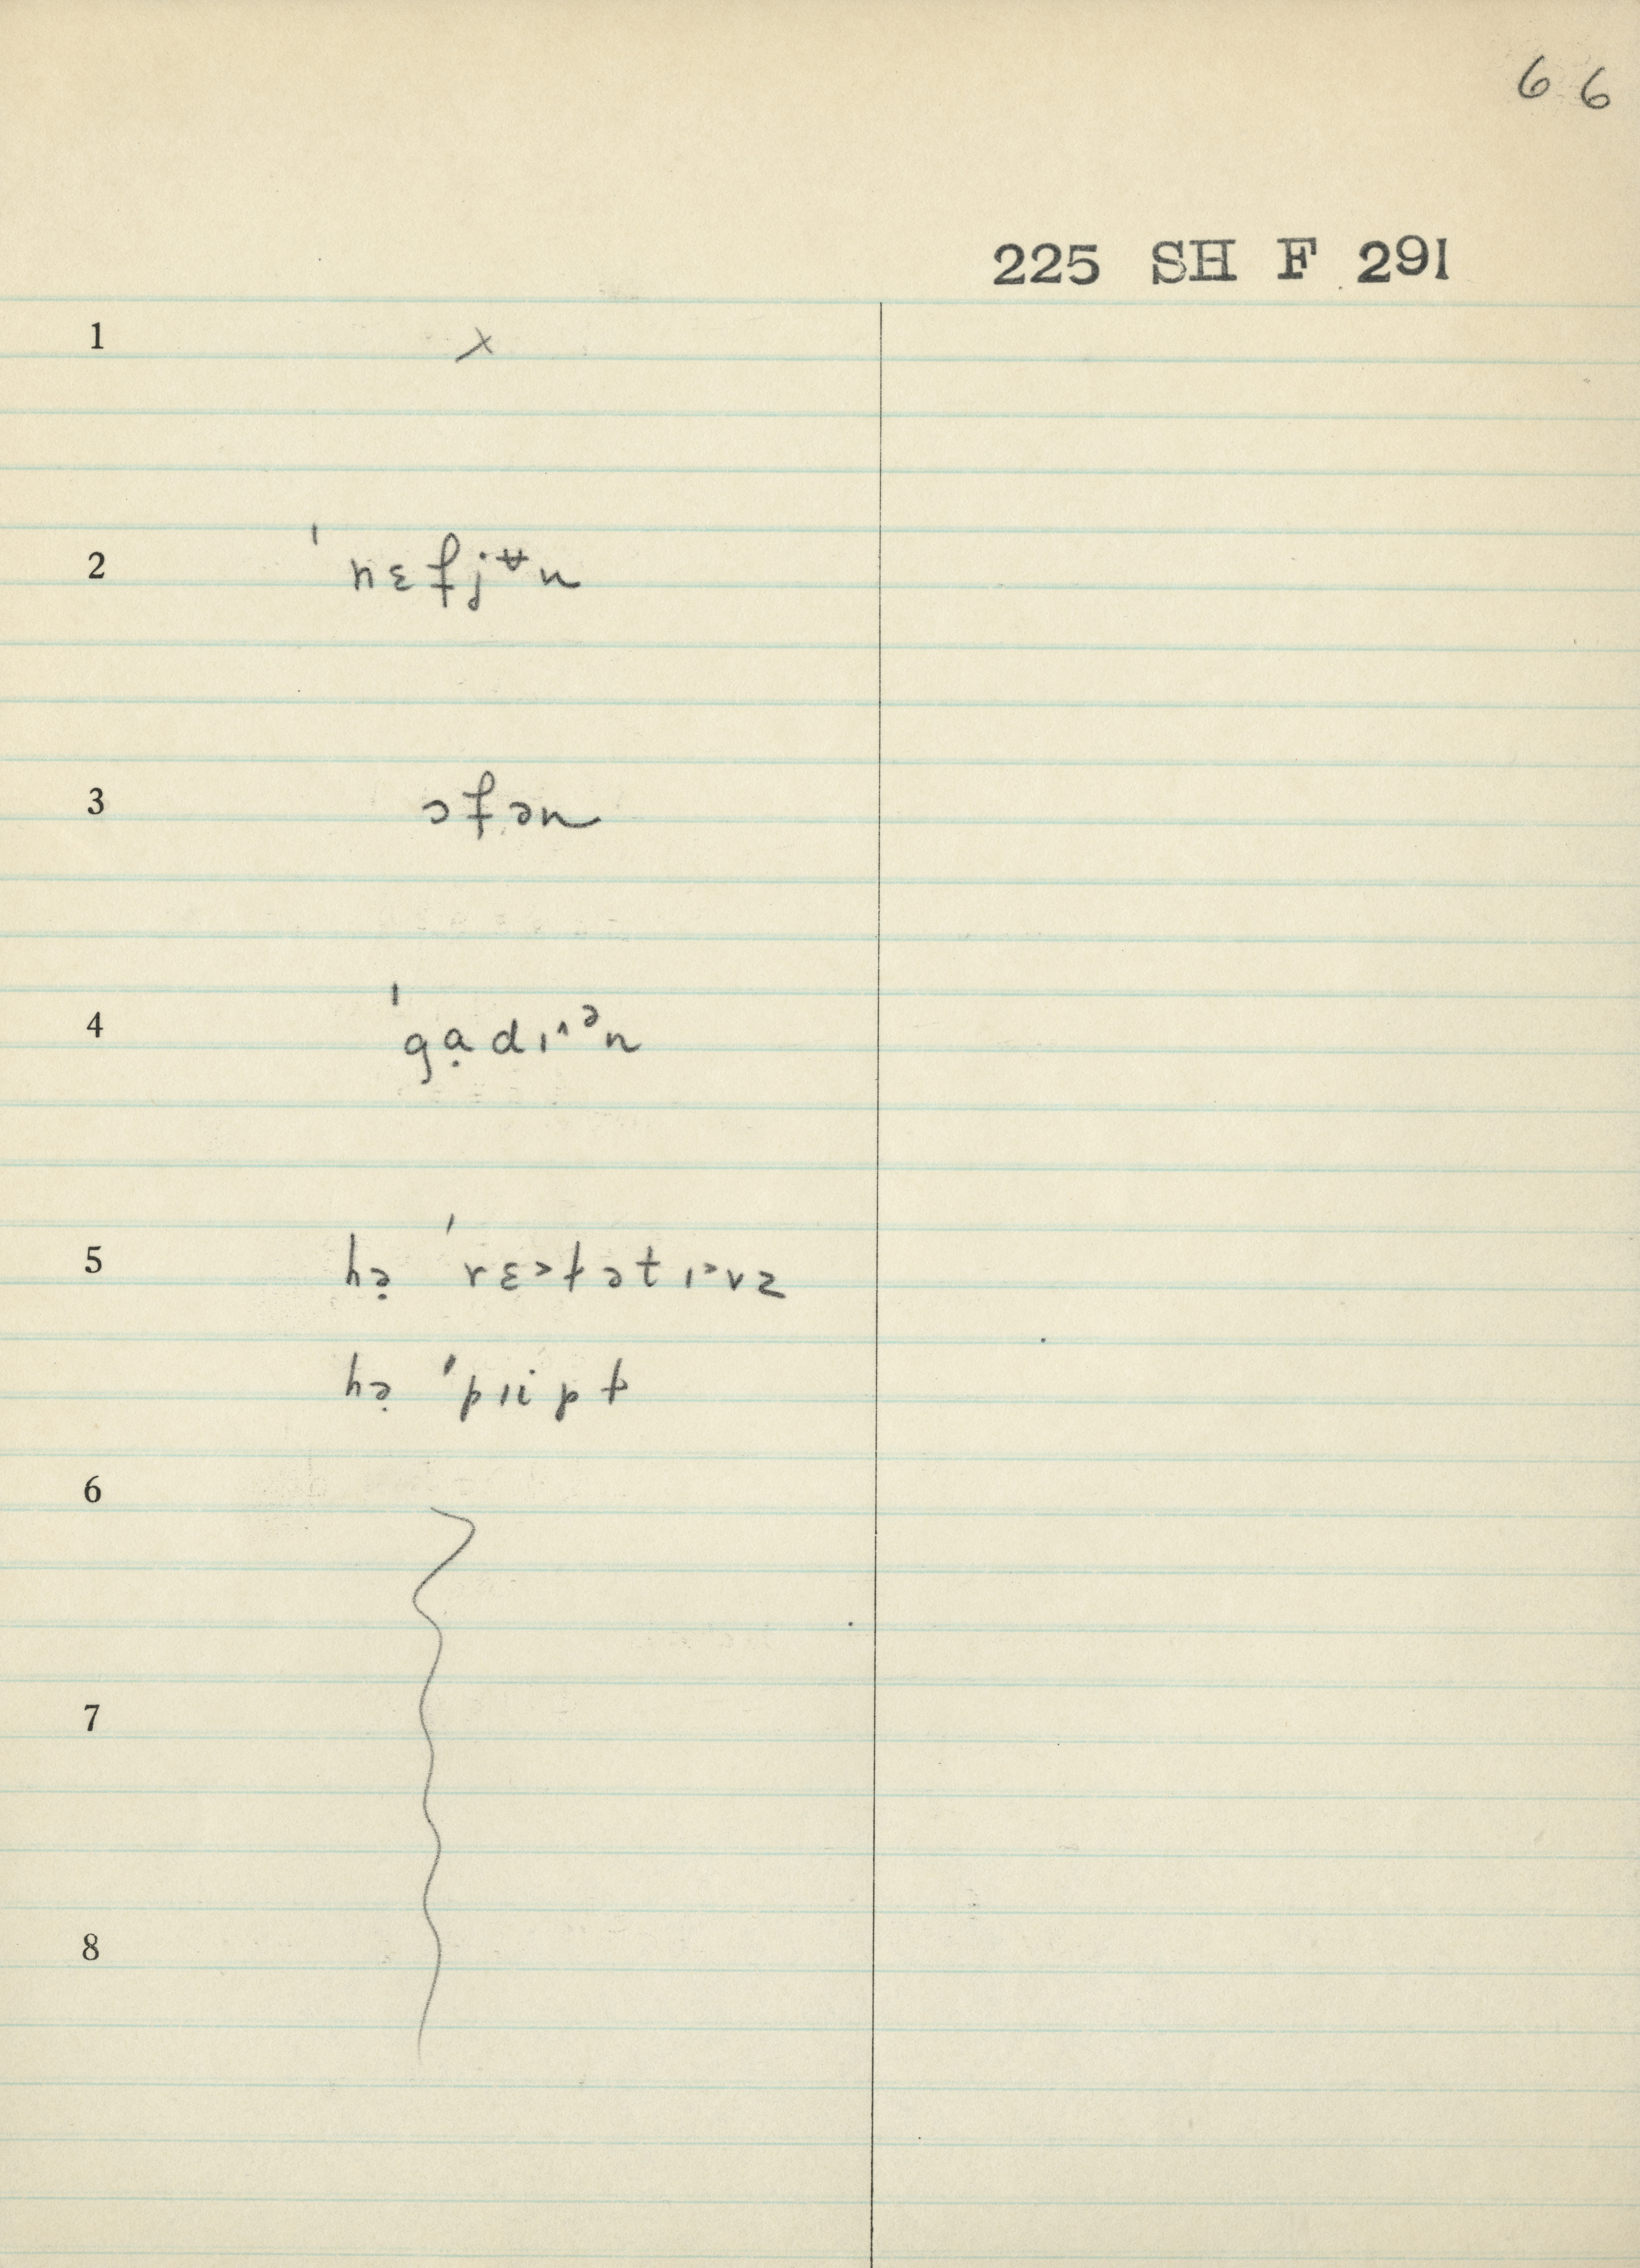 66
225 SH F 291
1 x
2 ˈnɛfjʉn
3 ɔfən
4 ˈgạdɪ^ᵊn
5 hə̣ ˈrɛ˃ɫətɪ˃vz
hə̣ ˈpɪipɫ
6
7
8